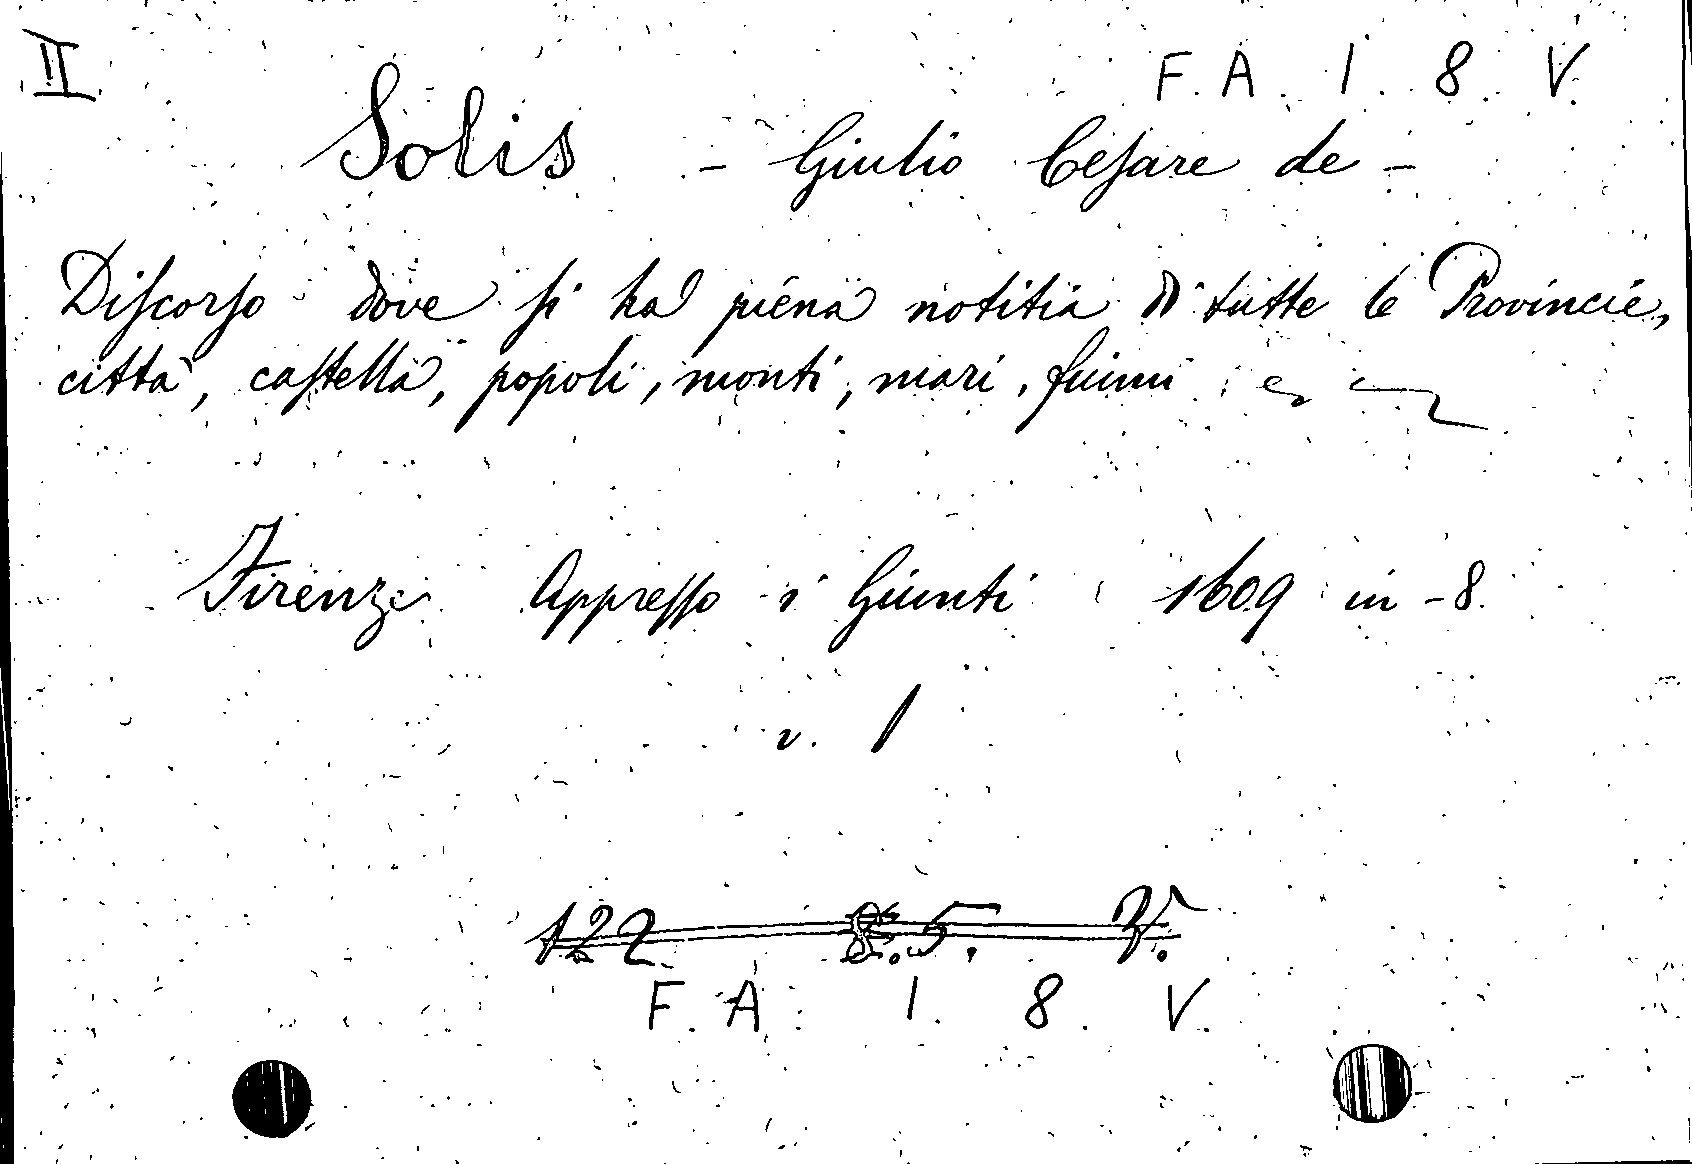 II
F. A. 1. 8. V.
Solis - Giulio Cesare de -
Discorso dove si ha piena notitia di tutte le Provincie,
città, castella, popoli, monti, mari, fiumi
Firenze Appresso i Giunti 1609 in-8.
v. 1
122 8.5. V.
F. A. 1. 8. V.